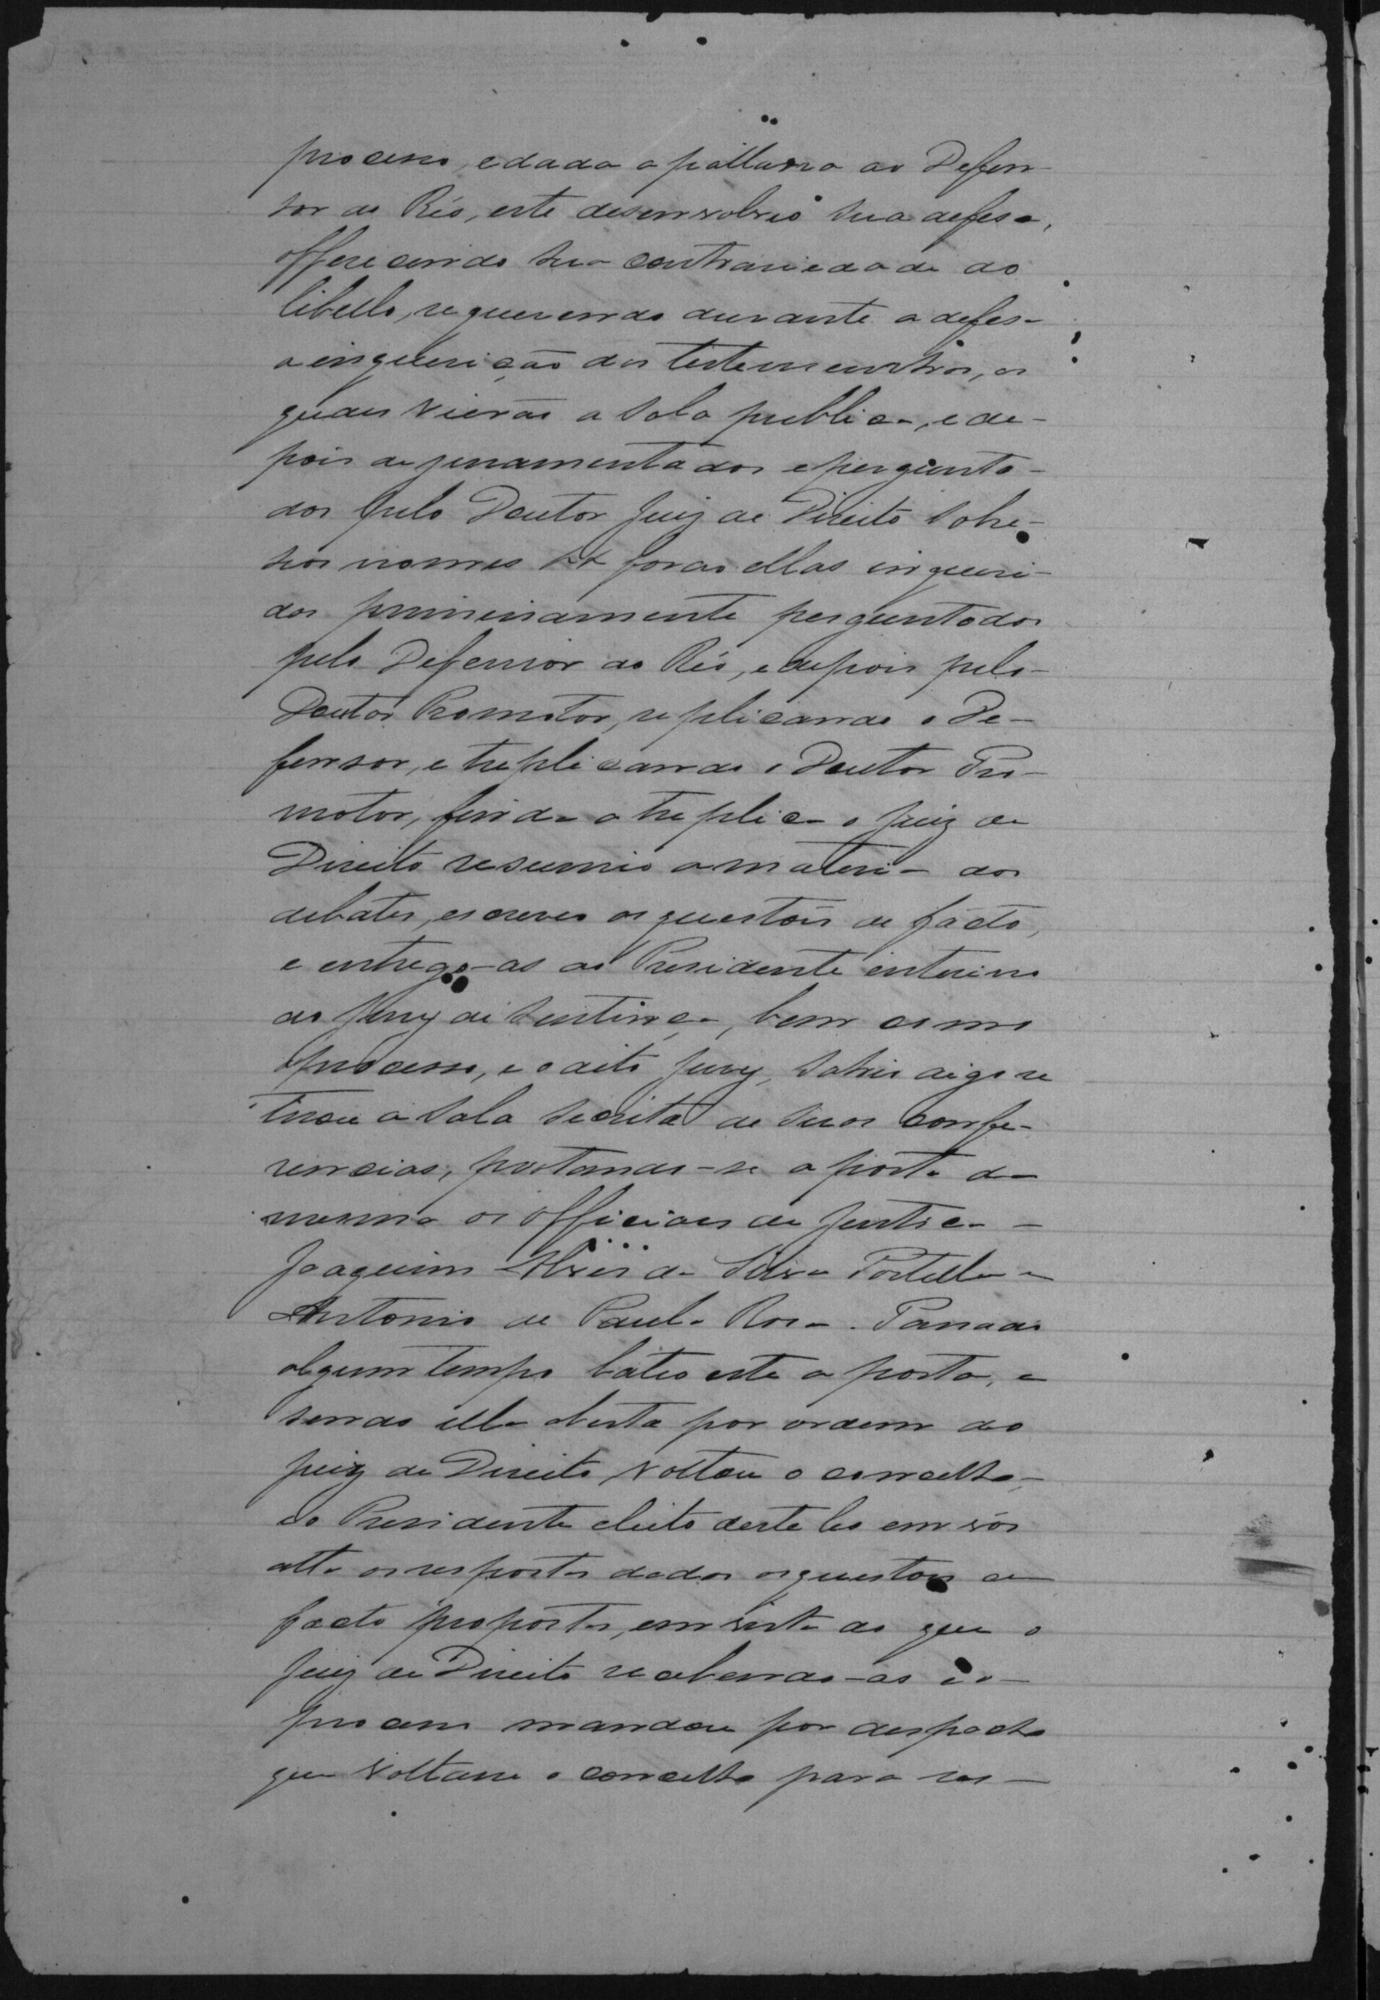 processo, e dada a pallavra ao Defen-
sor do Réo, este desenvolveo sua defesa,
offerecendo sua contrariedade ao
libello, requerendo durante a defesa
a inquerição das testemunhas, as
quaes vierão a sala publica, e de-
pois de juramentados e pergunta-
dos pelo Doutor Juiz de Direito sobre
seos nomes forão ellas inqueri-
das primeiramente perguntadas
pelo Defensor do Réo, e depois pelo
Doutor Promotor, replicando o De-
fensor, e treplicando o Doutor Pro-
motor, finda a treplica o Juiz de
Direito resumio a materia dos
debates, escreveo as questões de facto,
e entrego-as ao Presidente interino
do Jury de Sentença, bem como
o processo, e o dito Jury, sahio digo re
tirou a sala secreta de suas confe-
rencias, postando-se a porta da
mesma os officiaes de Justiça
Joaquim Alves da Silva Portella e
Antonio de Paula Rosa. Passado
algum tempo bateo este a porta, e
sendo ella aberta por ordem do
Juiz de Direito, voltou o conselho,
e o Presidente eleito deste leo em vós
alta as respostas dadas as questões de
facto propostas, em vista do que o
Juiz de Direito recebendo-as e o
processo mandou por despacho
que voltasse o conselho para res-